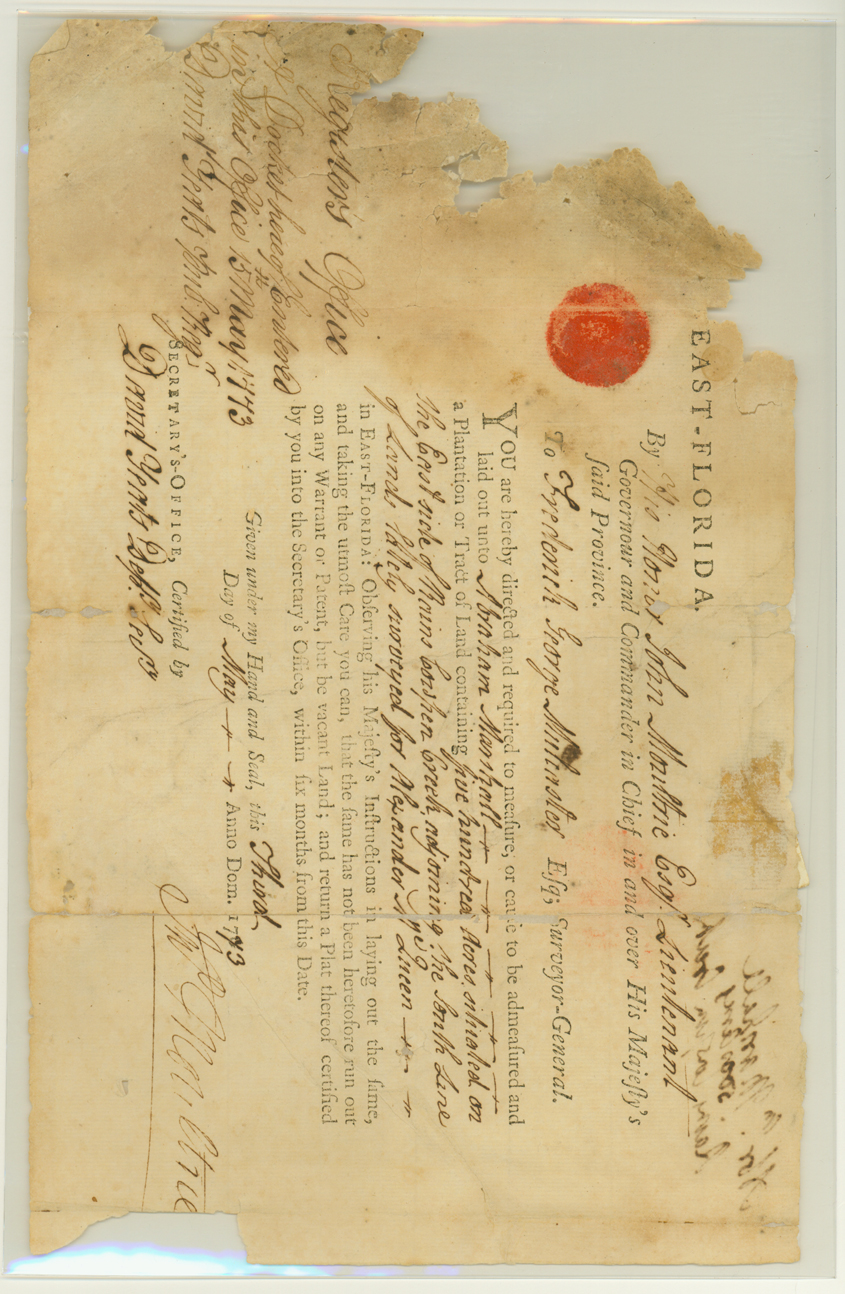 EAST-FLORIDA.
By His Honor John Moultrie Esqr. Lieutenant
Governour and Commander in Chief in and over His Majeſty's
ſaid Province.
To Frederick George Mulcaster Eſq; Surveyor-General.
YOU are hereby directed and required to meaſure, or cauſe to be admeaſured and
laid out unto Abraham Marshall
a Plantation or Tract of Land containing five hundred Acres, situated on
the East side of Mains Cowpen Creek, adjoining the South Line
of Lands lately surveyed for Alexander
in EAST-FLORIDA: Obſerving his Majeſty's Inſtructions in laying out the ſame,
and taking the utmoſt Care you can, that the ſame has not been heretofore run out
on any Warrant or Patent, but be vacant Land; and return a Plat thereof certified
by you into the Secretary's Office, within ſix months from this Date.
Given under my Hand and Seal, this Third
Day of May Anno Dom. 1773
Jno Moultrie
SECRETARY'S-OFFICE, Certified by
David Yeats Depy. Secy
Register's Office
A Docket hereof Entered
in this Office 15th May 1773
David Yeats